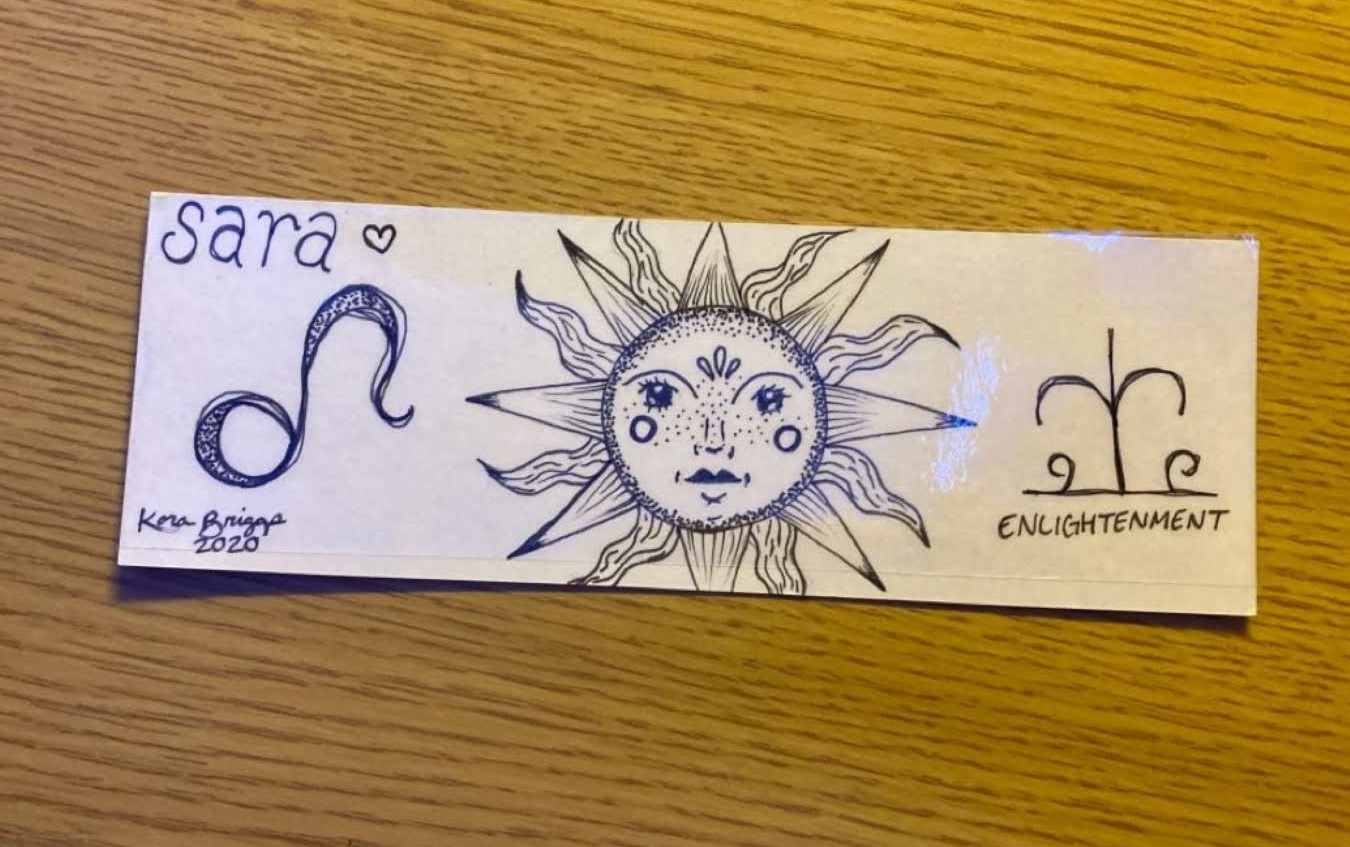 sara ♡
Kora Briggs
2020
ENLIGHTENMENT